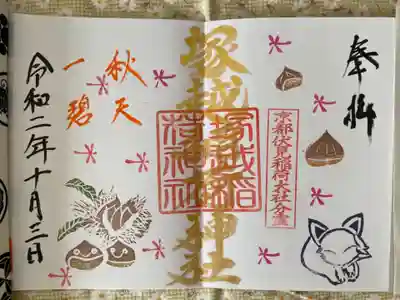 奉拝
京都伏見稲荷大社分霊
塚越稲荷神社
塚越稲荷神社
秋天
一碧
令和二年十月三日